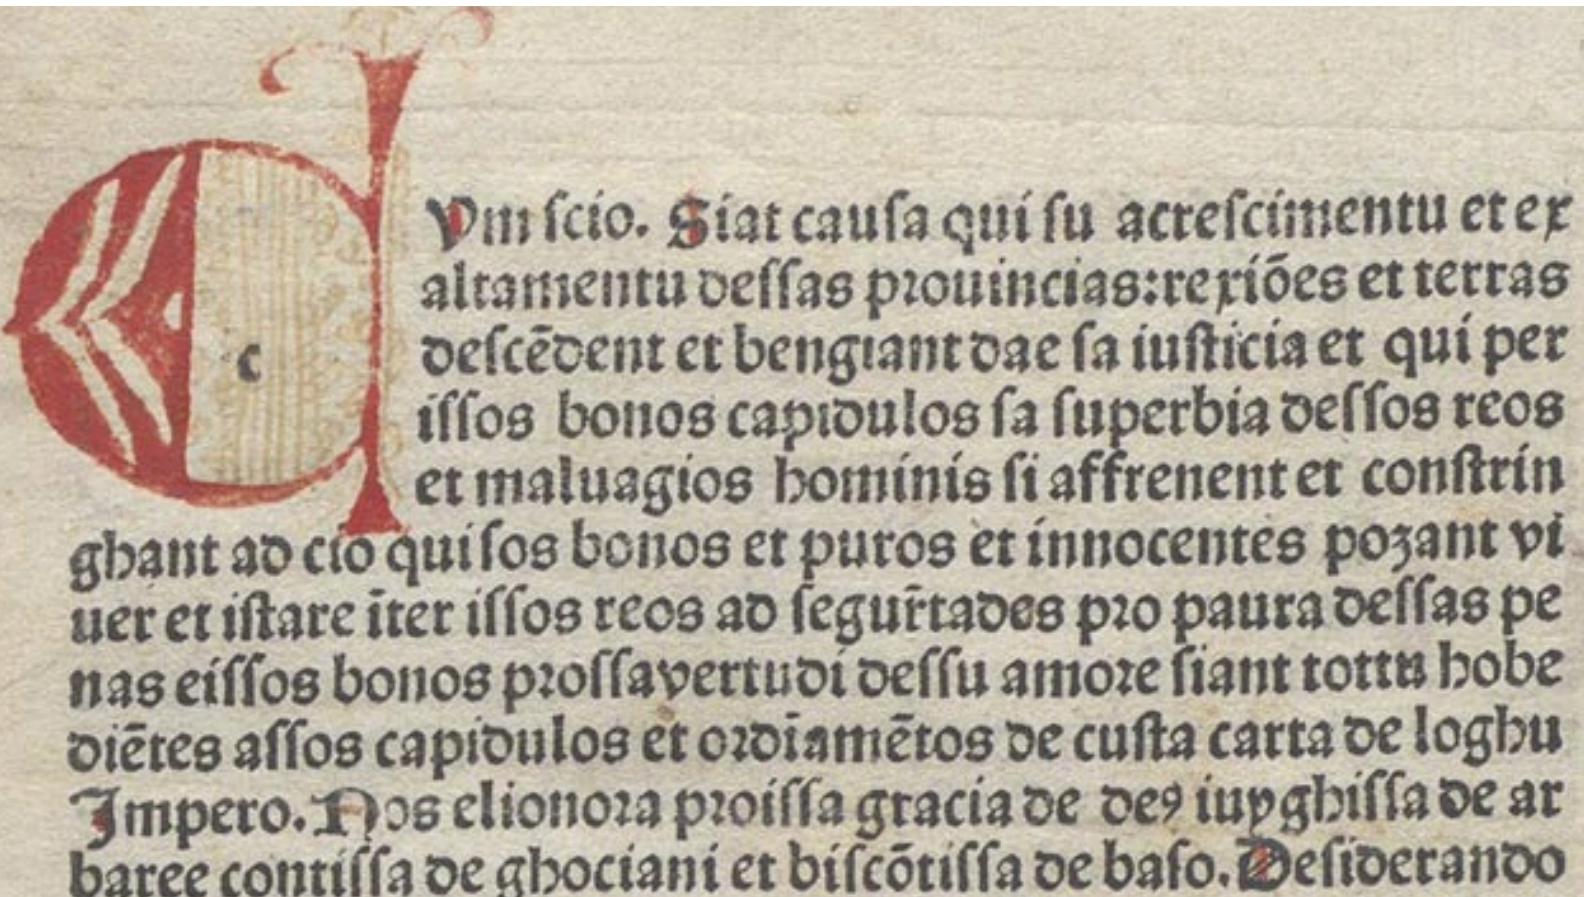 CVm scio. Siat causa qui su acrescimentu et ex
altamentu dessas prouincias:rexiões et terras
descēdent et bengiant dae sa iusticia et qui per
issos bonos capidulos sa superbia dessos reos
et maluagios hominis si affrenent et constrin
ghant ad cio qui sos bonos et puros et innocentes pozant vi
uer et istare īter issos reos ad segur̄tades pro paura dessas pe
nas eissos bonos prossavertudi dessu amore siant tottu hobe
diētes assos capidulos et ordīamētos de custa carta de loghu
Impero. Nos elionora proissa gracia de deꝰ iuyghissa de ar
baree contissa de ghociani et biscōtissa de baso. Desiderando